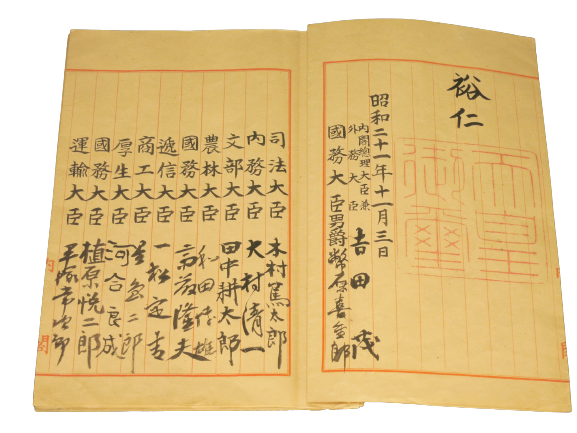 裕仁
昭和二十一年十一月三日
内閣総理大臣兼
外務大臣 吉田茂
国務大臣男爵幣原喜重郎
司法大臣 木村篤太郎
内務大臣 大村清一
文部大臣 田中耕太郎
農林大臣 和田博雄
国務大臣 斎藤隆夫
逓信大臣 一松定吉
商工大臣 星島二郎
厚生大臣 河合良成
国務大臣 植原悦二郎
運輸大臣 平塚常次郎
内閣